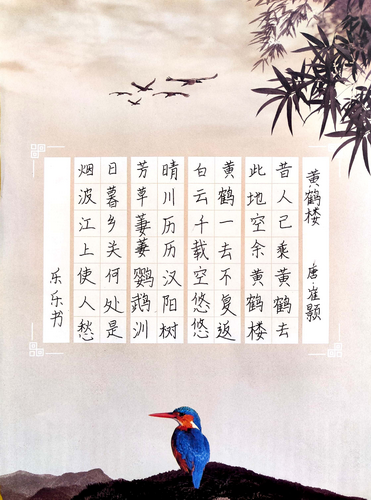 黄鹤楼 唐·崔颢
昔人已乘黄鹤去
此地空余黄鹤楼
黄鹤一去不复返
白云千载空悠悠
晴川历历汉阳树
芳草萋萋鹦鹉洲
日暮乡关何处是
烟波江上使人愁
乐乐书